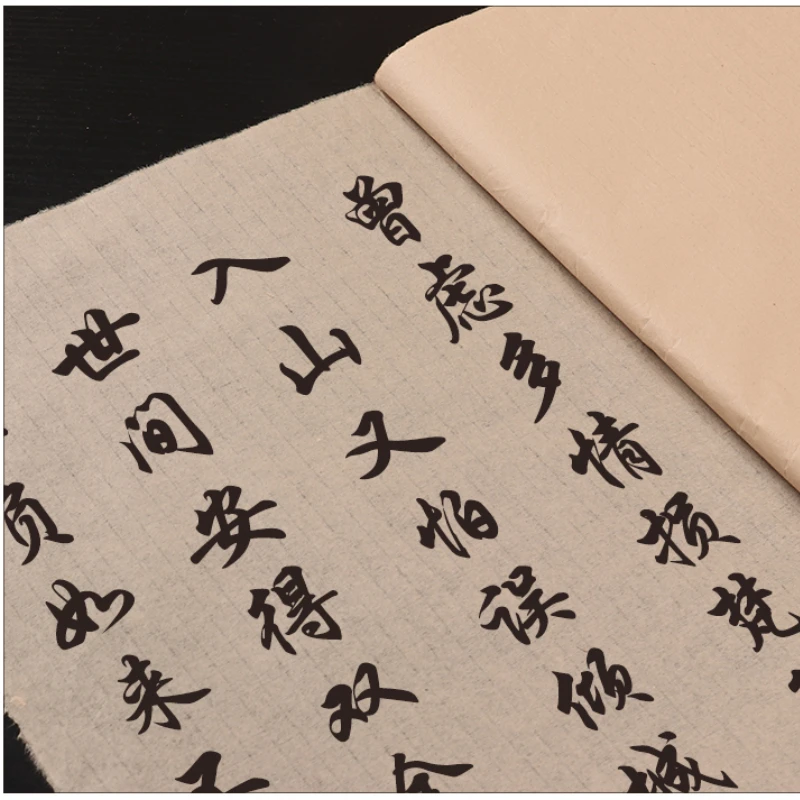 曾虑多情损梵
入山又怕误倾城
世间安得双全
负如来不